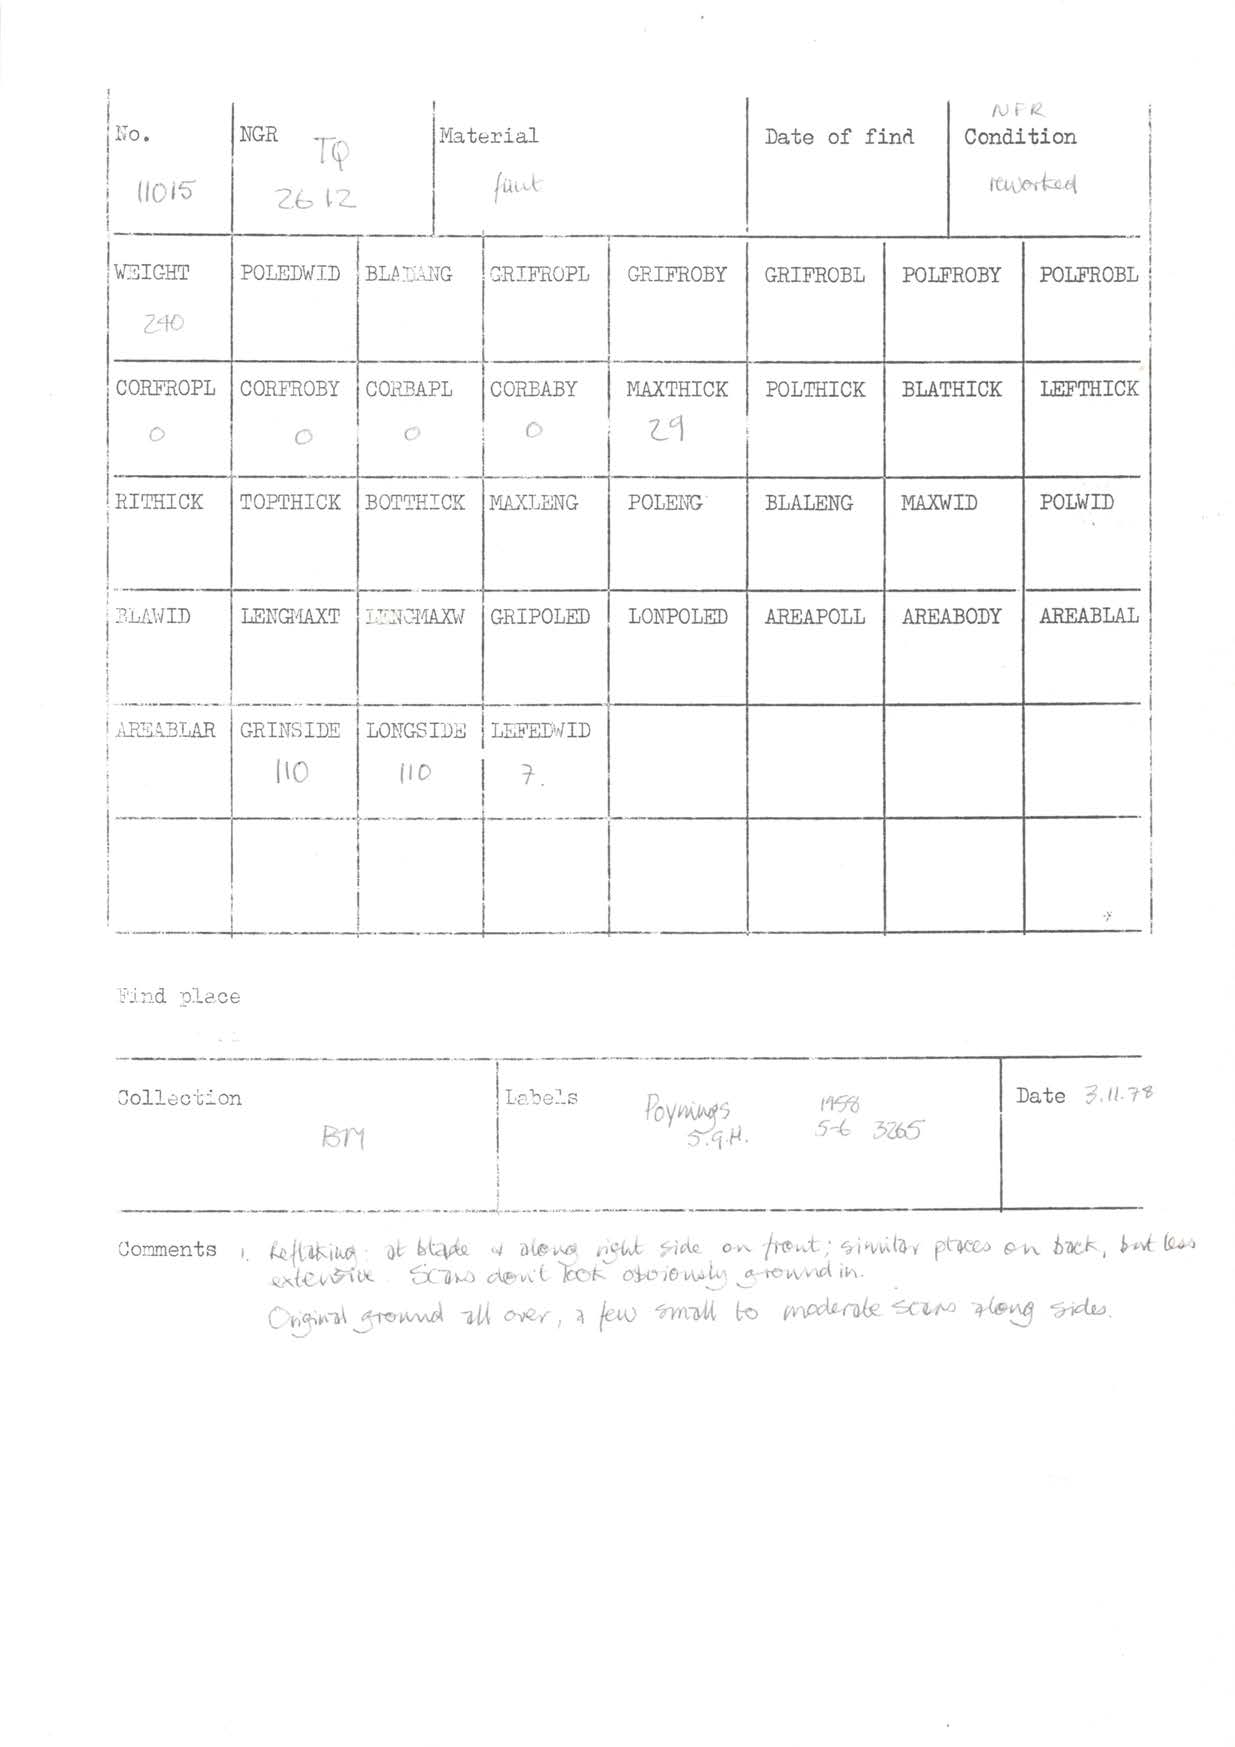 NFR
No. NGR Material Date of find Condition
TQ
11015 26 12 flint reworked
WEIGHT POLEDWID BLADANG GRIFROPL GRIFROBY GRIFROBL POLFROBY POLFROBL
240
CORFROPL CORFROBY CORBAPL CORBABY MAXTHICK POLTHICK BLATHICK LEFTHICK
0 0 0 0 29
RITHICK TOPTHICK BOTTHICK MAXLENG POLENG BLALENG MAXWID POLWID
BLAWID LENGMAXT LENGMAXW GRIPOLED LONPOLED AREAPOLL AREABODY AREABLAL
AREABLAR GRINSIDE LONGSIDE LEFEDWID
110 110 7.
Find place
Collection Labels Poynings 1958 Date 3.11.78
BM S.G.H. 5-6 3265
Comments 1. Reflaking: at blade & along right side on front; similar places on back, but less
extensive. Scars don't look obviously ground in.
Original ground all over, a few small to moderate scars along sides.